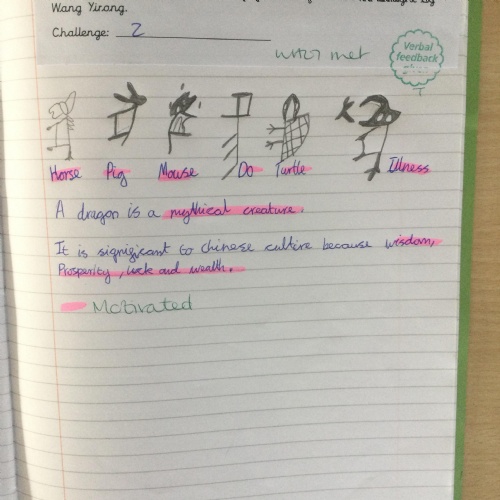 Wang Yirong.
Challenge: 2
Verbal feedback given
met
Horse Pig Mouse Do Turtle Illness
A dragon is a mythical creature.
It is signigicant to chinese cultire because wisdom,
Prosperity, luck and wealth.
Motivated